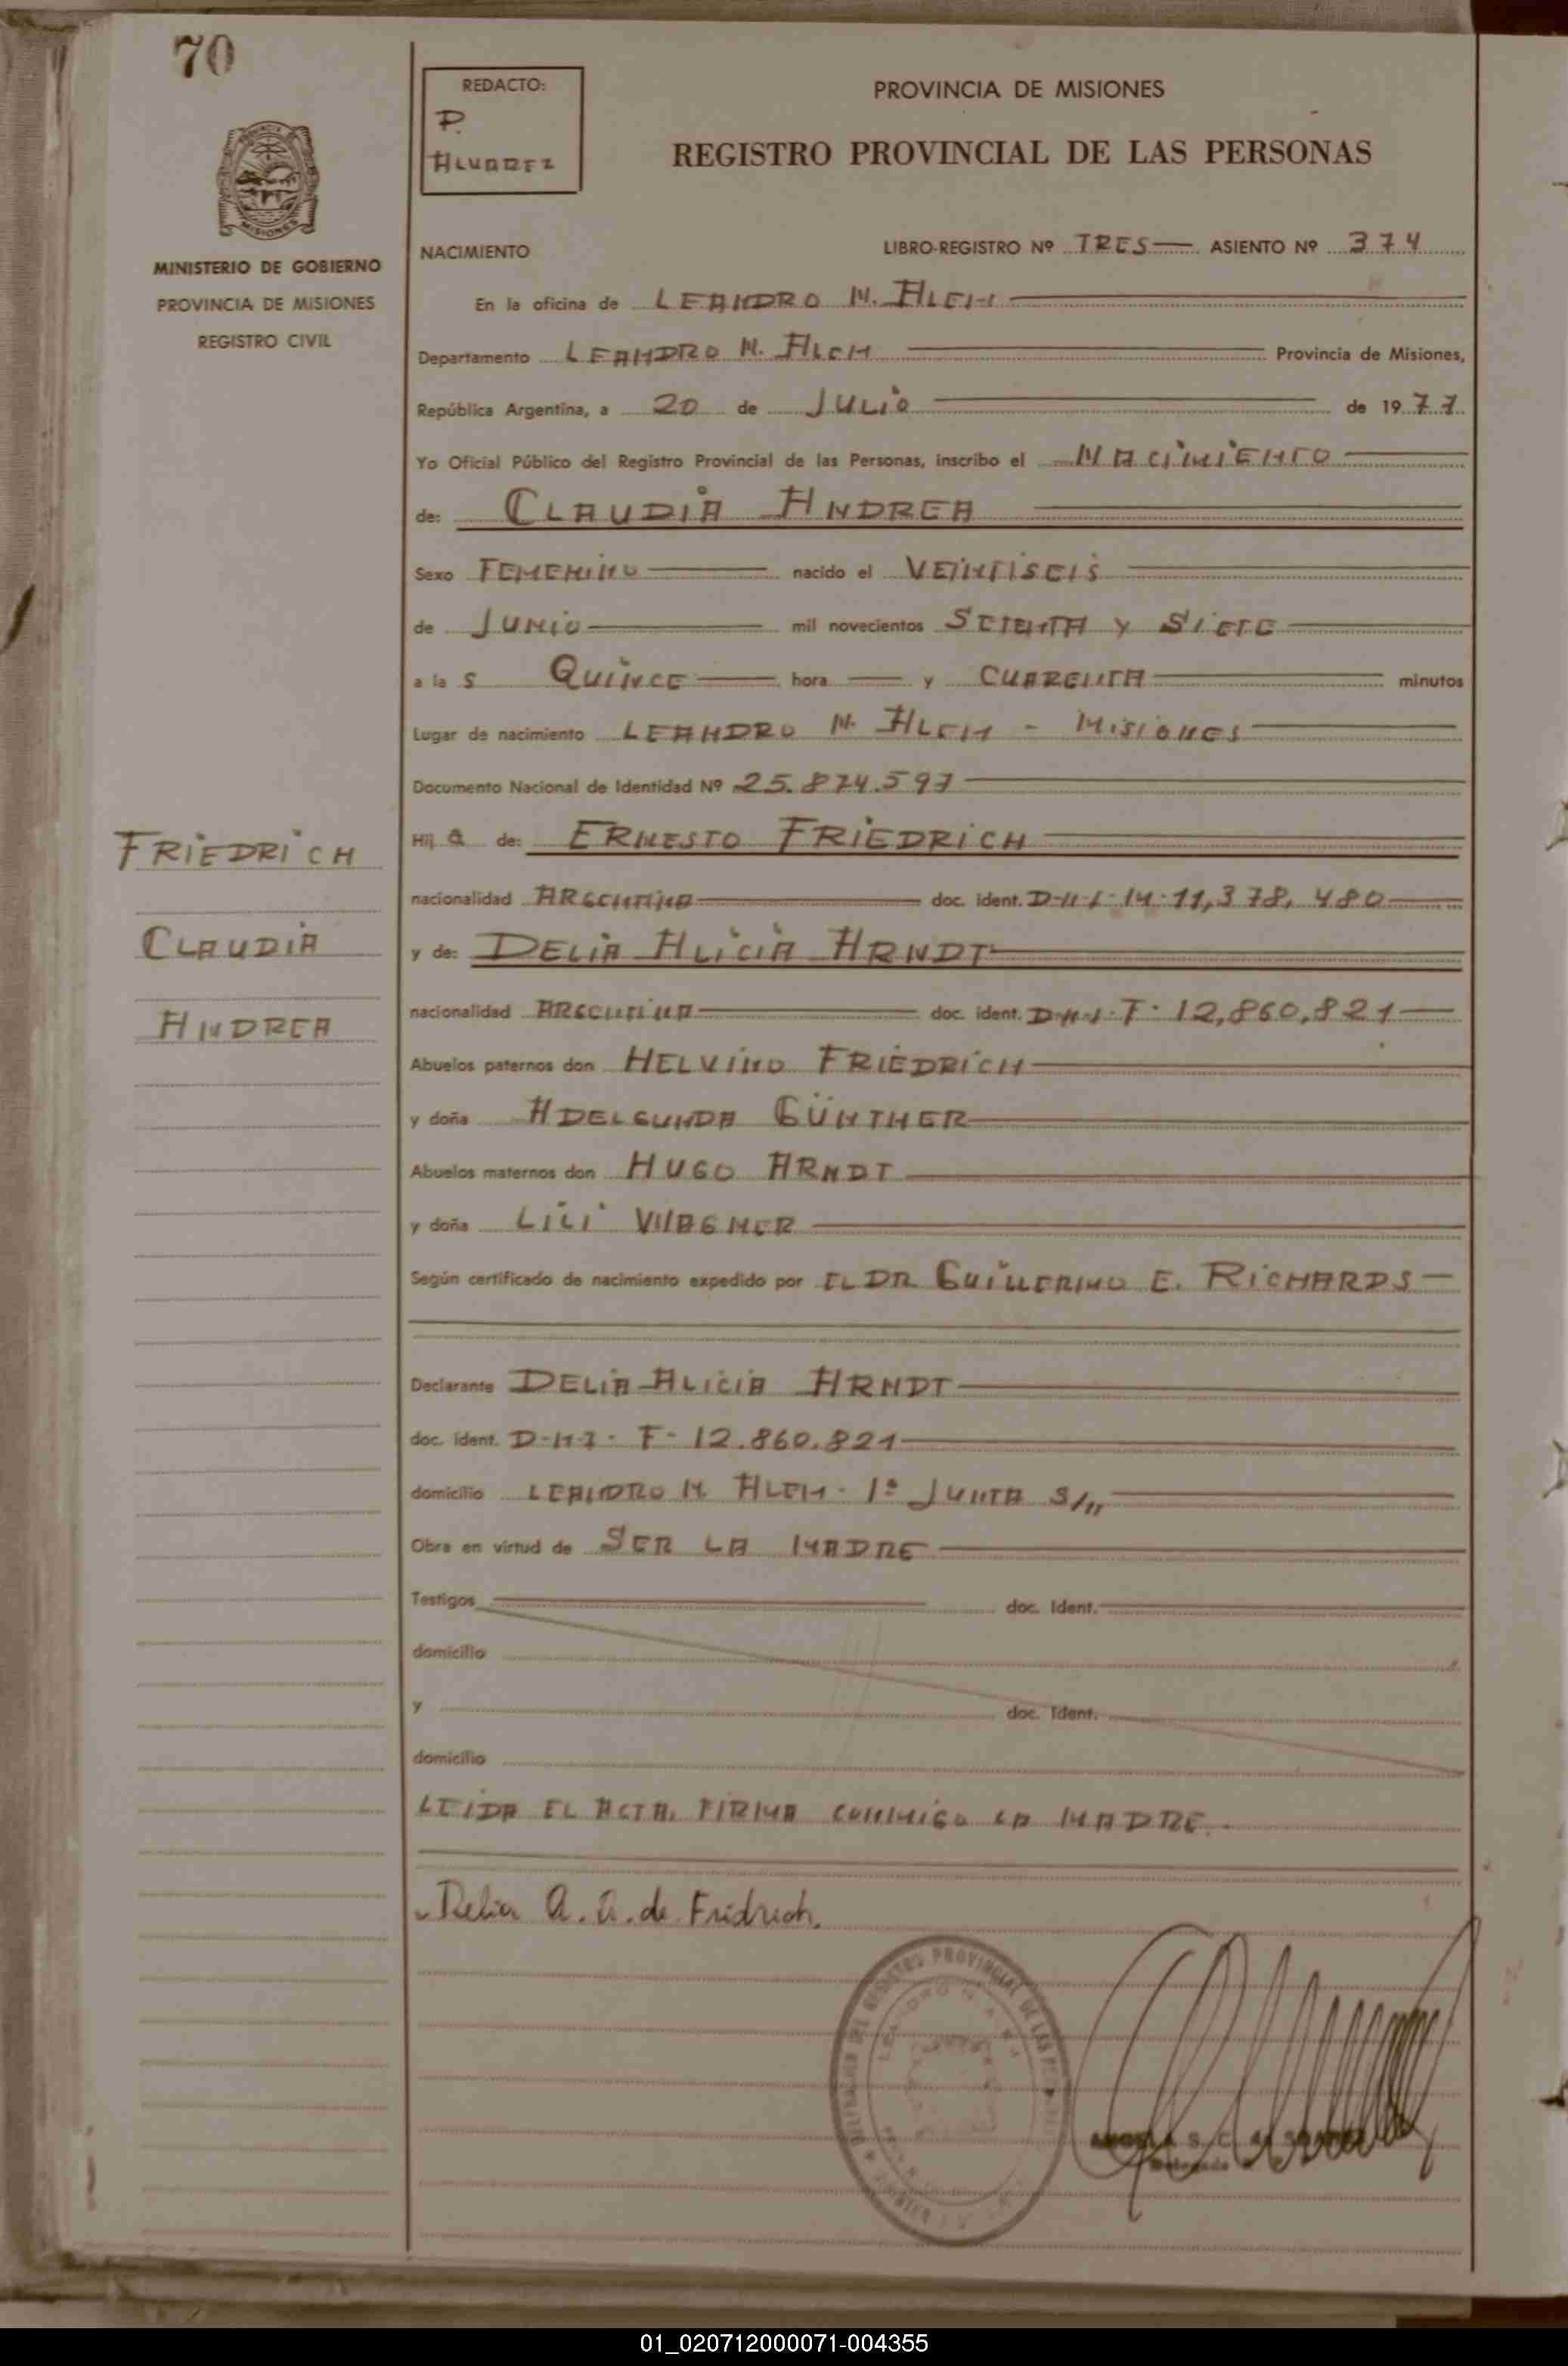 70
REDACTO:
P.
ALVAREZ
PROVINCIA DE MISIONES
REGISTRO PROVINCIAL DE LAS PERSONAS
MINISTERIO DE GOBIERNO
PROVINCIA DE MISIONES
REGISTRO CIVIL
NACIMIENTO LIBRO-REGISTRO Nº TRES ASIENTO Nº 374
En la oficina de LEANDRO N. ALEM
Departamento LEANDRO N. ALEM Provincia de Misiones,
República Argentina, a 20 de JULIO de 1977
Yo Oficial Público del Registro Provincial de las Personas, inscribo el NACIMIENTO
de: CLAUDIA ANDREA
Sexo FEMENINO nacido el VEINTISEIS
de JUNIO mil novecientos SETENTA Y SIETE
a la S QUINCE hora y CUARENTA minutos
Lugar de nacimiento LEANDRO N. ALEM - MISIONES
Documento Nacional de Identidad Nº 25.874.597
FRIEDRICH
CLAUDIA
ANDREA
Hij a de: ERNESTO FRIEDRICH
nacionalidad ARGENTINA doc. ident. D-N-I-M-11,378,480
y de: DELIA ALICIA ARNDT
nacionalidad ARGENTINA doc. ident. D-N-I-F-12,860,821
Abuelos paternos don HELVINO FRIEDRICH
y doña ADELGUNDA GÜNTHER
Abuelos maternos don HUGO ARNDT
y doña LILI WAGNER
Según certificado de nacimiento expedido por EL DR GUILLERMO E. RICHARDS
Declarante DELIA ALICIA ARNDT
doc. ident. D-N-I-F-12.860.821
domicilio LEANDRO N. ALEM - 1ª JUNTA S/N
Obra en virtud de SER LA MADRE
Testigos doc. Ident.
domicilio
y doc. Ident.
domicilio
LEIDA EL ACTA. FIRMA CONMIGO LA MADRE.
Delia A. A. de Fridrich.
PROVINCIAL DE LAS
01_020712000071-004355